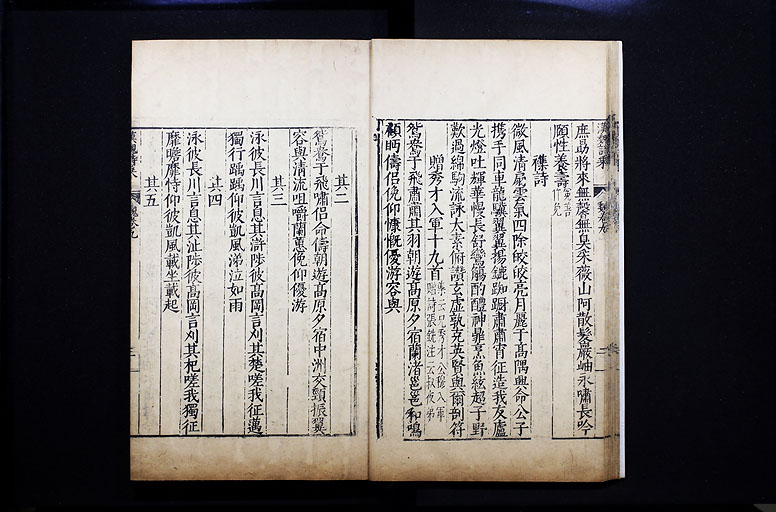 庶勗將來無馨無臭采薇山阿散髮巖岫永嘯長吟
頤性養壽
襍詩
微風清扇雲氣四除皎皎亮月麗于高隅興命公子
携手同車龍驥翼翼揚鑣踟蹰肅肅宵征造我友廬
光燈吐輝華幔長舒鸞觴酌醴神鼎烹魚絃超子野
歎過綿駒流詠太素俯讚玄虛孰克英賢與爾剖符
贈秀才入軍十九首 集云兄秀才公穆入軍贈詩張銑注云叔夜弟
鴛鴦于飛肅肅其羽朝遊高原夕宿蘭渚邕邕和鳴
顧眄儔侶俛仰慷慨優游容與
其二
鴛鴦于飛嘯侶命儔朝遊高原夕宿中洲交頸振翼
容與清流咀嚼蘭蕙俛仰優游
其三
泳彼長川言息其滸陟彼高岡言刈其楚嗟我征邁
獨行踽踽仰彼凱風涕泣如雨
其四
泳彼長川言息其沚陟彼高岡言刈其杞嗟我獨征
靡瞻靡恃仰彼凱風載坐載起
其五